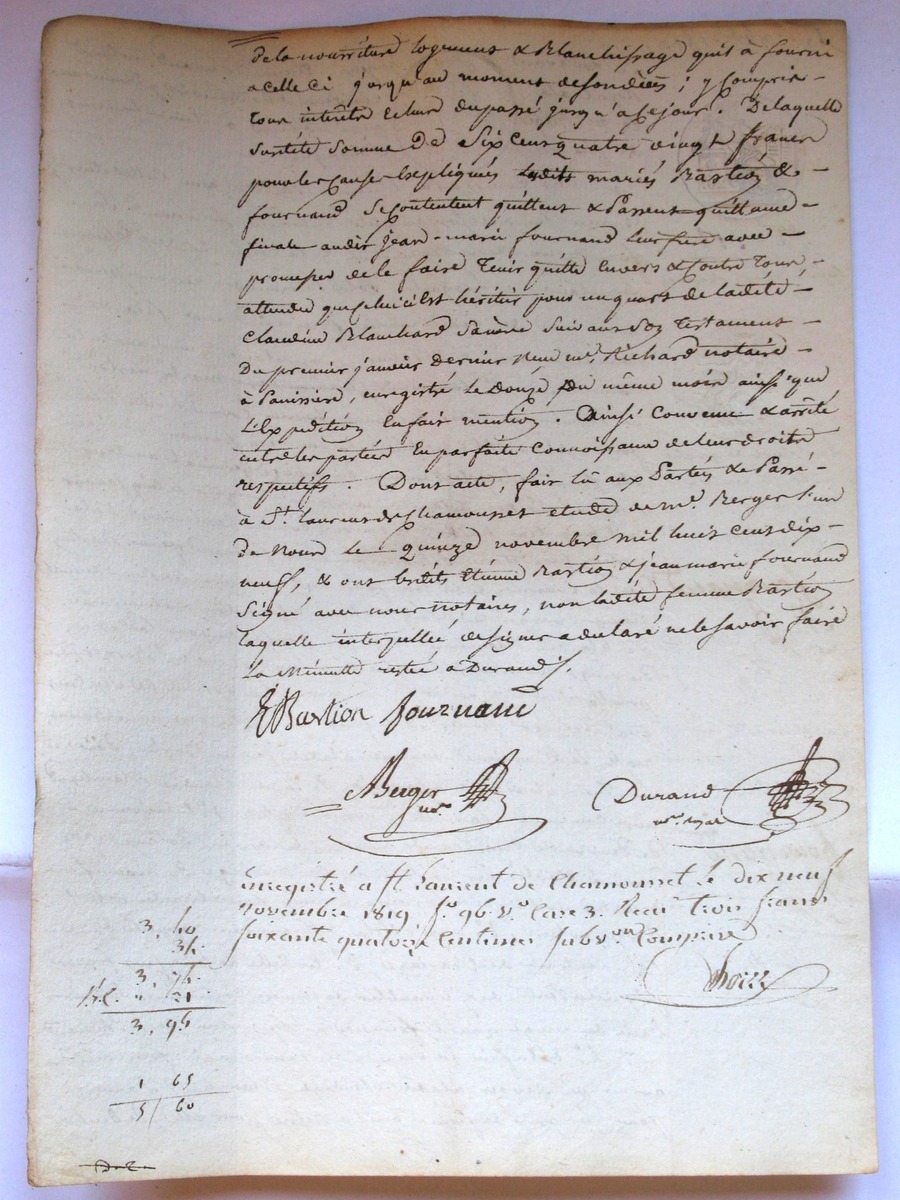 de la nourriture logement & Blanchissage quil à fourni
a celle ci jusqu'au moment de son décès ; y Compris
tous intérêts Echus du passé jusqu'à ce jour. De laquelle
susdite Somme De Six Cens quatre vingt francs
pour les causes Expliqués Lesdits mariés Bastion &
fournand Se Contentent quittent & Passent quittance
finale audit jean-marie fournand leur frere avec
promesse de le faire Tenir quitte Envers & Contre Tous,
attendu que celui ci Est héritier pour un quart de ladite
Claudine Blanchard Sa mère Suivant Son Testament
Du premier janvier dernier Reçu me. Richard notaire
à Panissiere, enregistré Le Douze Du même mois ainsi que
L'Expédition En fait mention. Ainsi Convenu & arrêté
entre les parties En parfaite Connoissance de leurs droits
respectifs. Dont acte, fait lû aux Parties & Passé
à St. Laurent de Chamousset étude de me. Berger l'un
de Nous Le quinze novembre mil huit cent dix
neuf, & ont lesdits Etienne Bastion & jean marie fournand
Signé avec nous notaires, non ladite femme Bastion
laquelle interpellée de signer a déclaré ne le Savoir faire
La Minutte restée a Durand /.
EBastion fournand
Berger nore
Durand nore royal
Enregistré a St. Laurent de Chamousset le dix neuf
novembre 1819 fo. 96. vo. Case 3. Recu trois francs
soixante quatorze Centimes subvon Comprise
3, 40
34
3, 74
" 21
3, 95
1 65
5/ 60